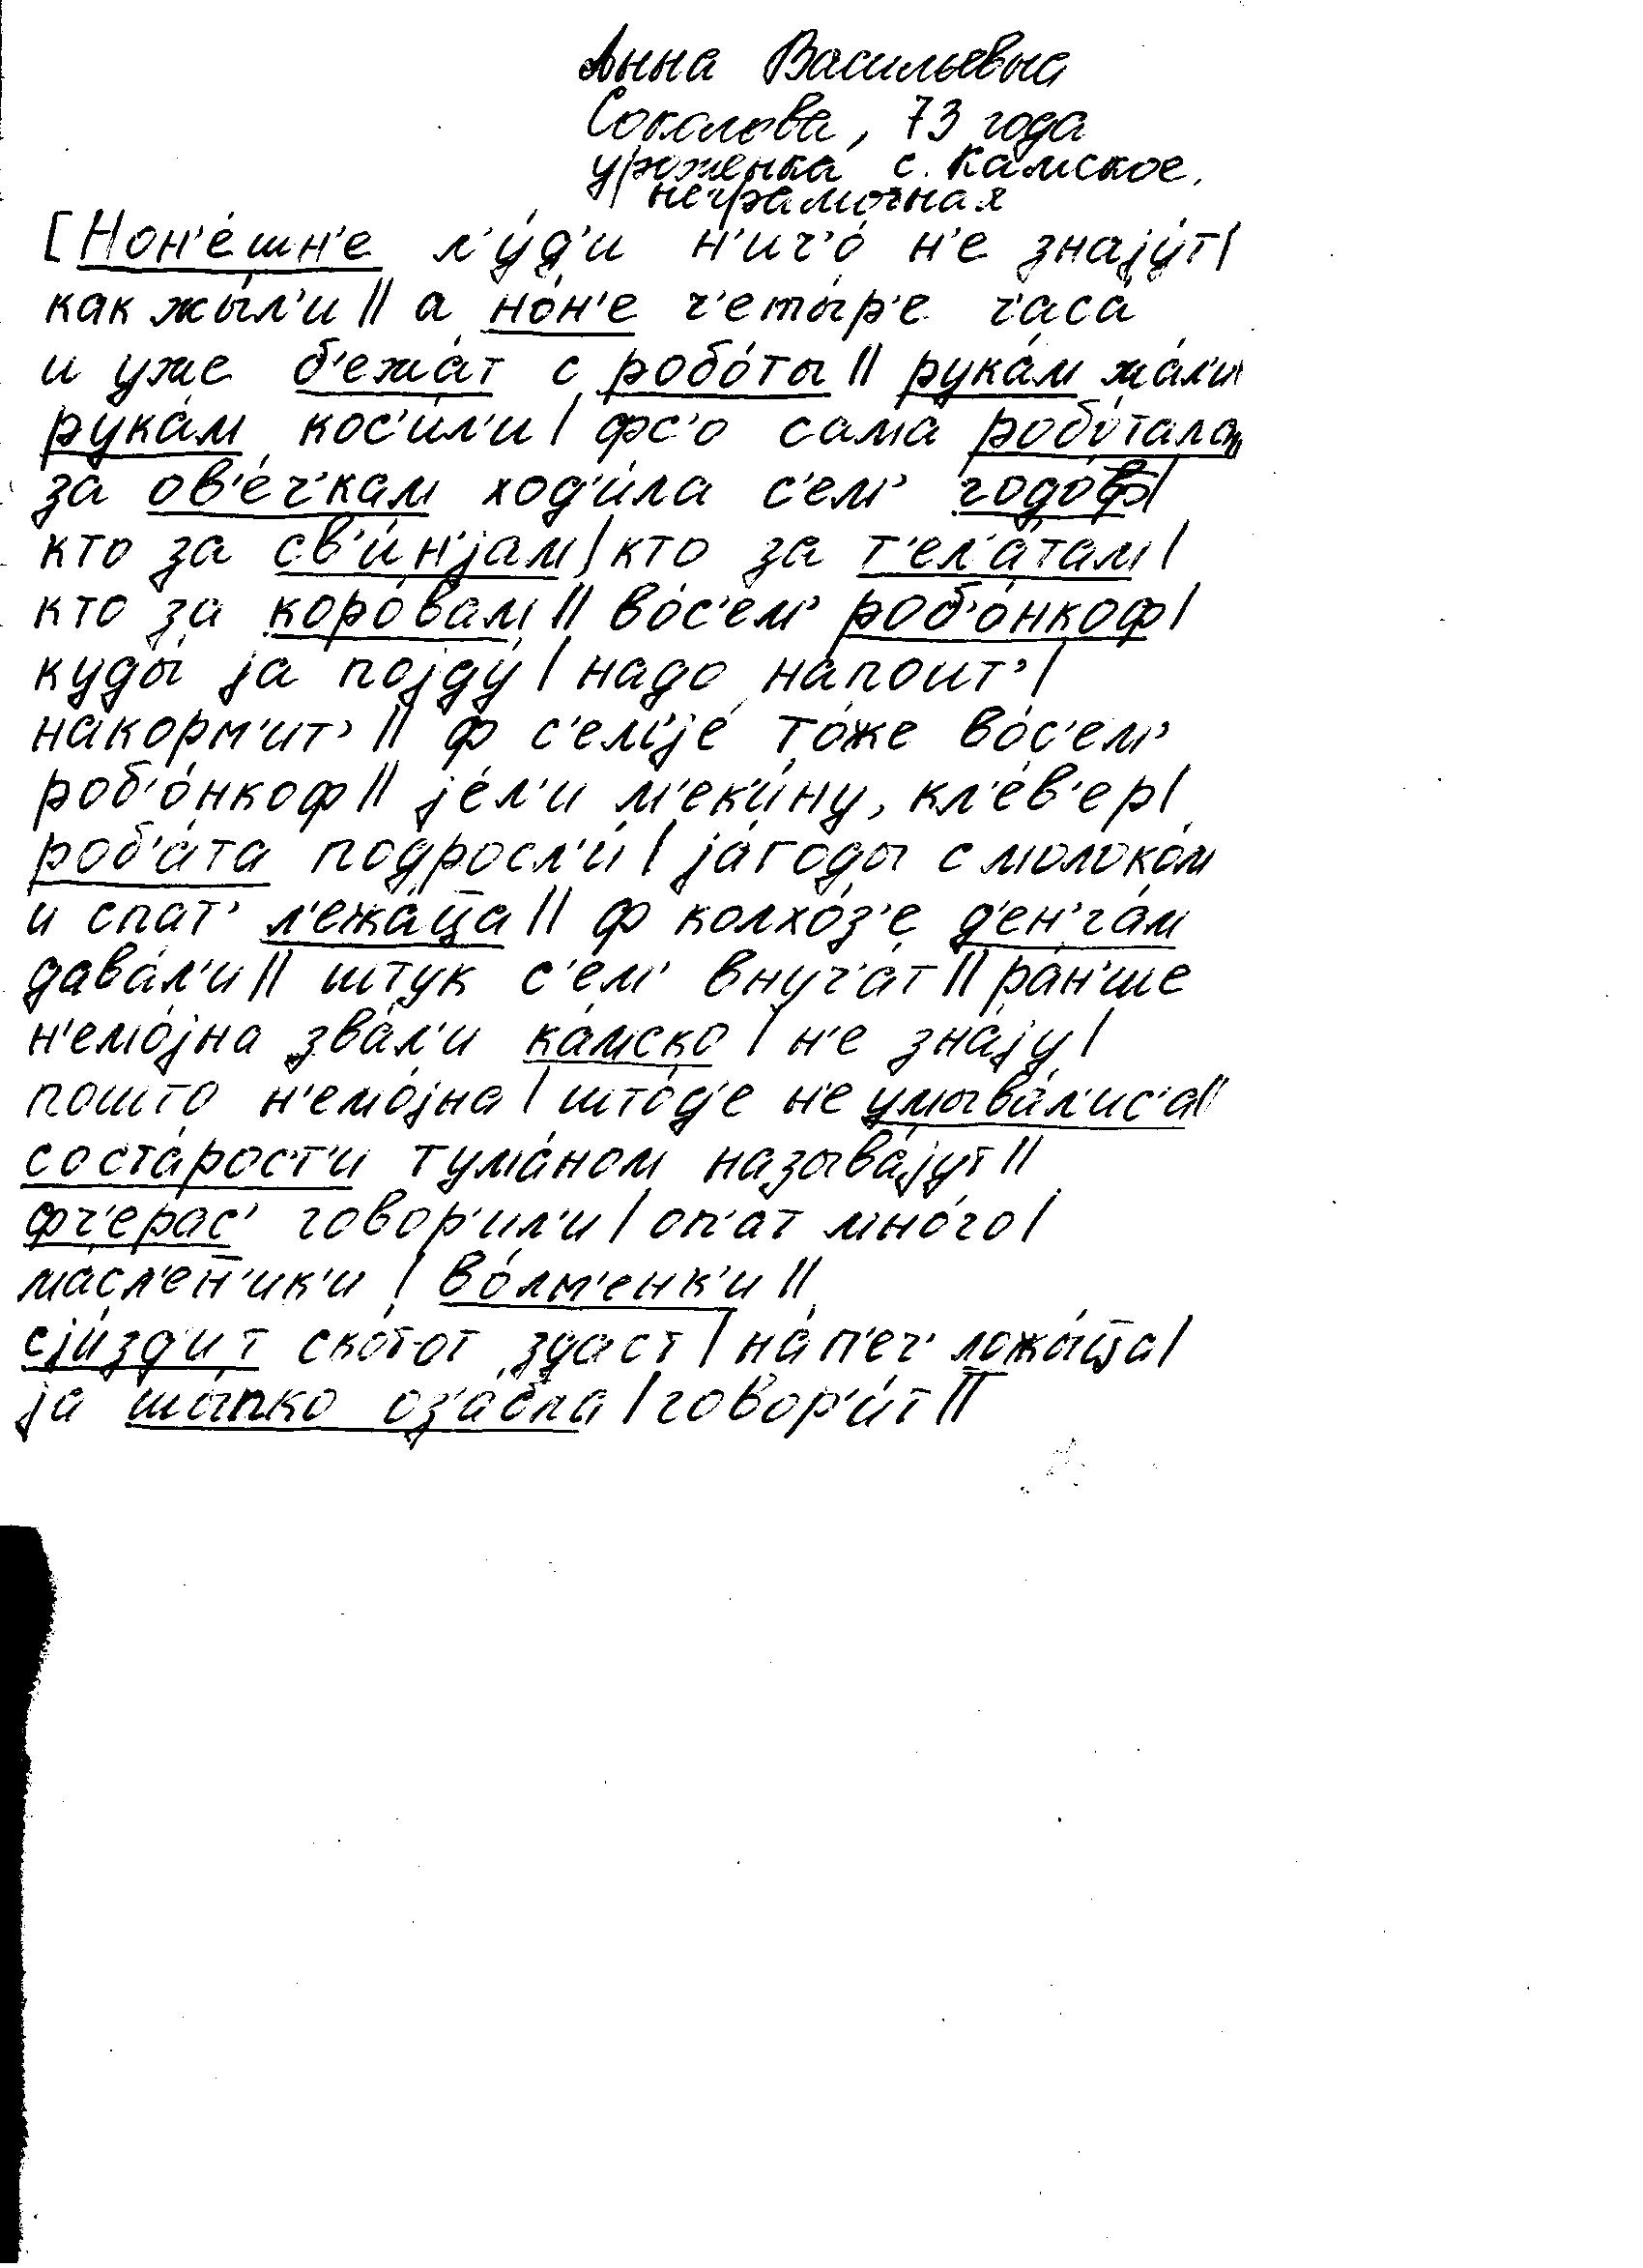 Анна Васильевна
Соколова, 73 года
уроженка с. Камское.
неграмотная
[Нон'е́шн'е л'у́д'и н'ич'о́ н'е знају́т|
как жы́л'и || а но́н'е ч'еты́р'е ч'аса́
и уже б'ежа́т с робо́ты || рука́м жа́л'и
рука́м кос'и́л'и | фс'о сама́ робо́тала
за ов'е́ч'кам ход'и́ла с'ем' годо́ф|
кто за св'и́н'јам | кто за т'ел'а́там |
кто за коро́вам || во́с'ем' роб'о́нкоф |
куды́ ја појду́ | надо напоит' |
накорм'ит' || ф с'ем'је́ то́же во́с'ем'
роб'о́нкоф || је́л'и м'ек'и́ну, кл'е́в'ер |
роб'а́та подросл'и́ | ја́годы с молоко́м
и спат' л'ежа́ца || ф колхо́з'е д'ен'га́м
дава́л'и || штук с'ем' внуч'а́т || ра́н'ше
н'емо́јна зва́л'и ка́мско | н'е зна́ју |
пошто н'емо́јна | што́д'е не умыва́л'ис'а ||
соста́рост'и тума́ном называ́јут ||
фч'ерас' говор'и́л'и | оп'ат мно́го |
масл'ен'ик'и | во́лм'енк'и ||
сји́зд'ит ско́т-от здаст | на́ п'еч' ложы́ца |
ја шы́пко оз'а́бла | говор'и́т ||